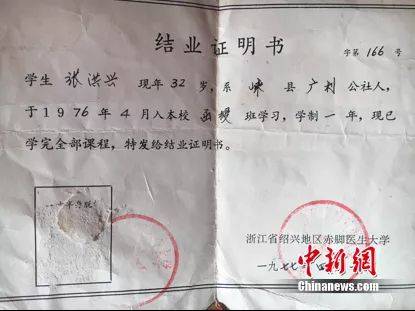 结业证明书
字第 166 号
学生 张洪兴 现年 32 岁,系 嵊 县 广利 公社人,
于 1976 年 4 月入本校 函授 班学习,学制 一 年,现已
学完全部课程,特发给结业证明书。
浙江省绍兴地区赤脚医生大学
一九七七
中新网
Chinanews.com